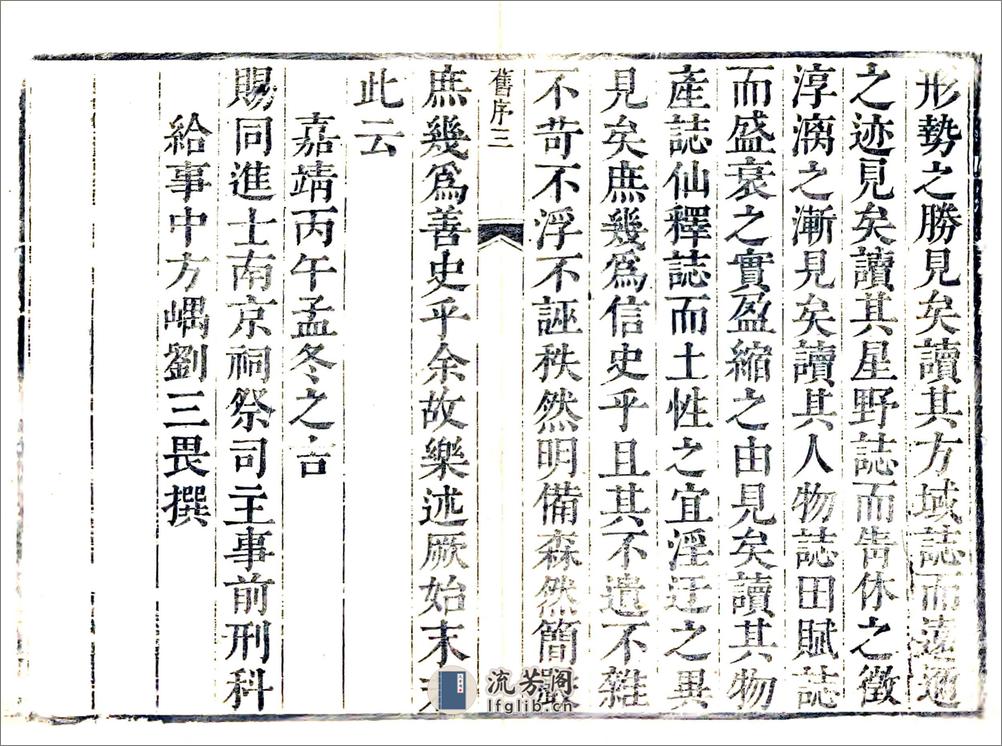 形勢之勝見矣讀其方域誌而遠邇
之迹見矣讀其星野誌而眚休之徵
淳漓之漸見矣讀其人物誌田賦誌
而盛衰之實盈縮之由見矣讀其物
產誌仙釋誌而土性之宜淫迂之異
見矣庶幾爲信史乎且其不遺不雜
不苛不浮不誣秩然明備森然簡
舊序三
庶幾爲善史乎余故樂述厥始末
此云
嘉靖丙午孟冬之吉
賜同進士南京祠祭司主事前刑科
給事中方嵎劉三畏撰
流芳閣
lfglib.cn